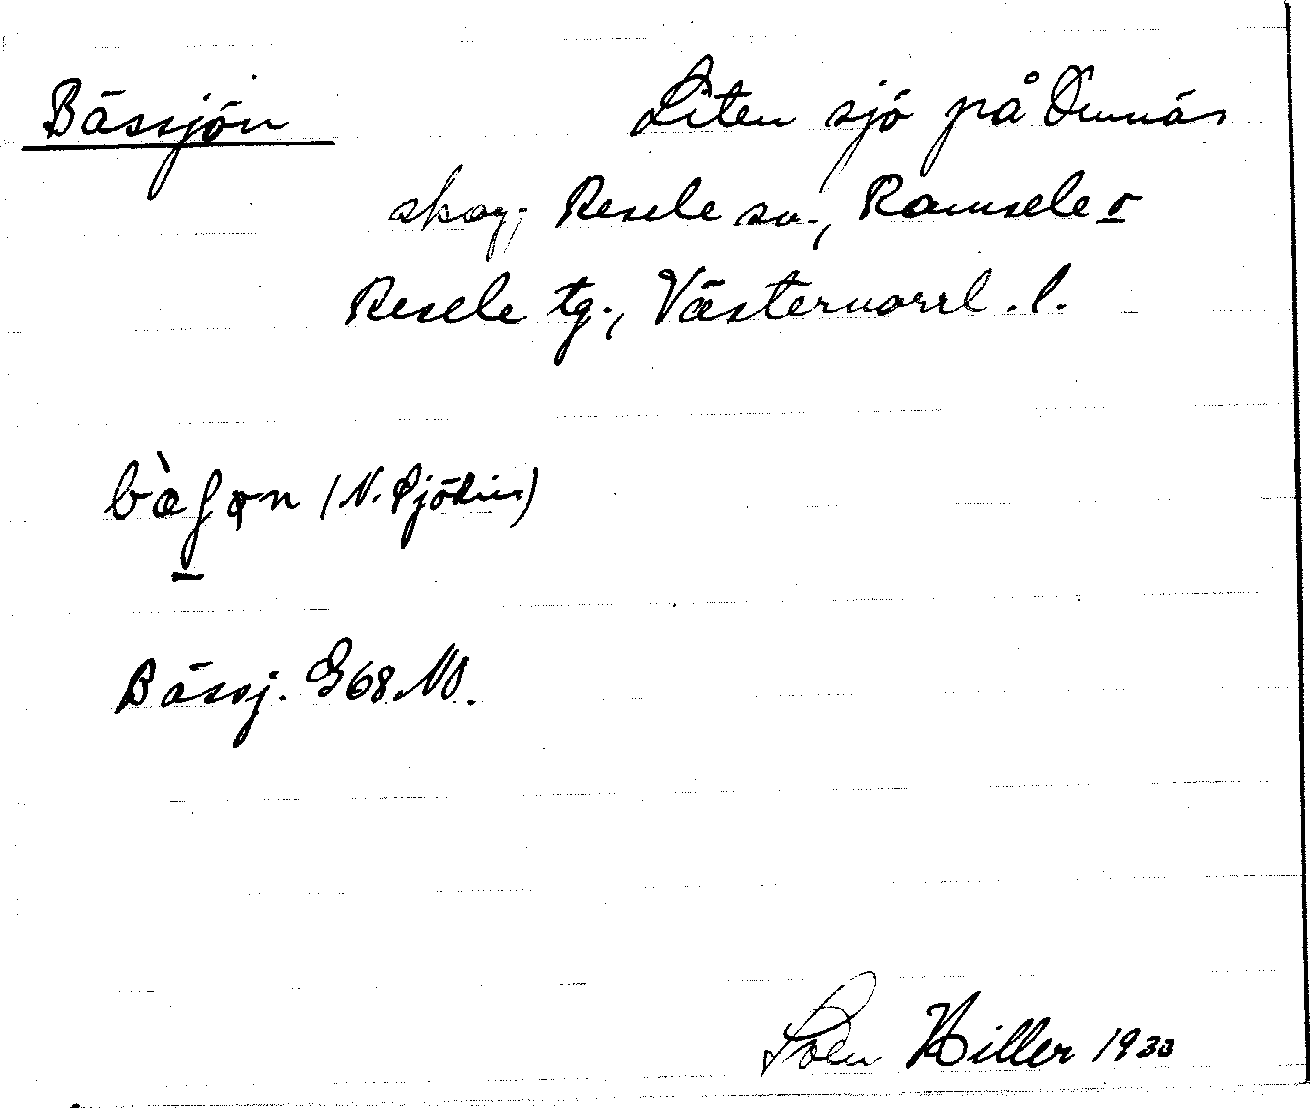 Bässjön Liten sjö på Omnäs
skog, Resele sn., Ramsele o
Resele tg., Västernorrl. l.
(N. Sjödin)
Bässj. G68 NO.
Sven Hiller 1933